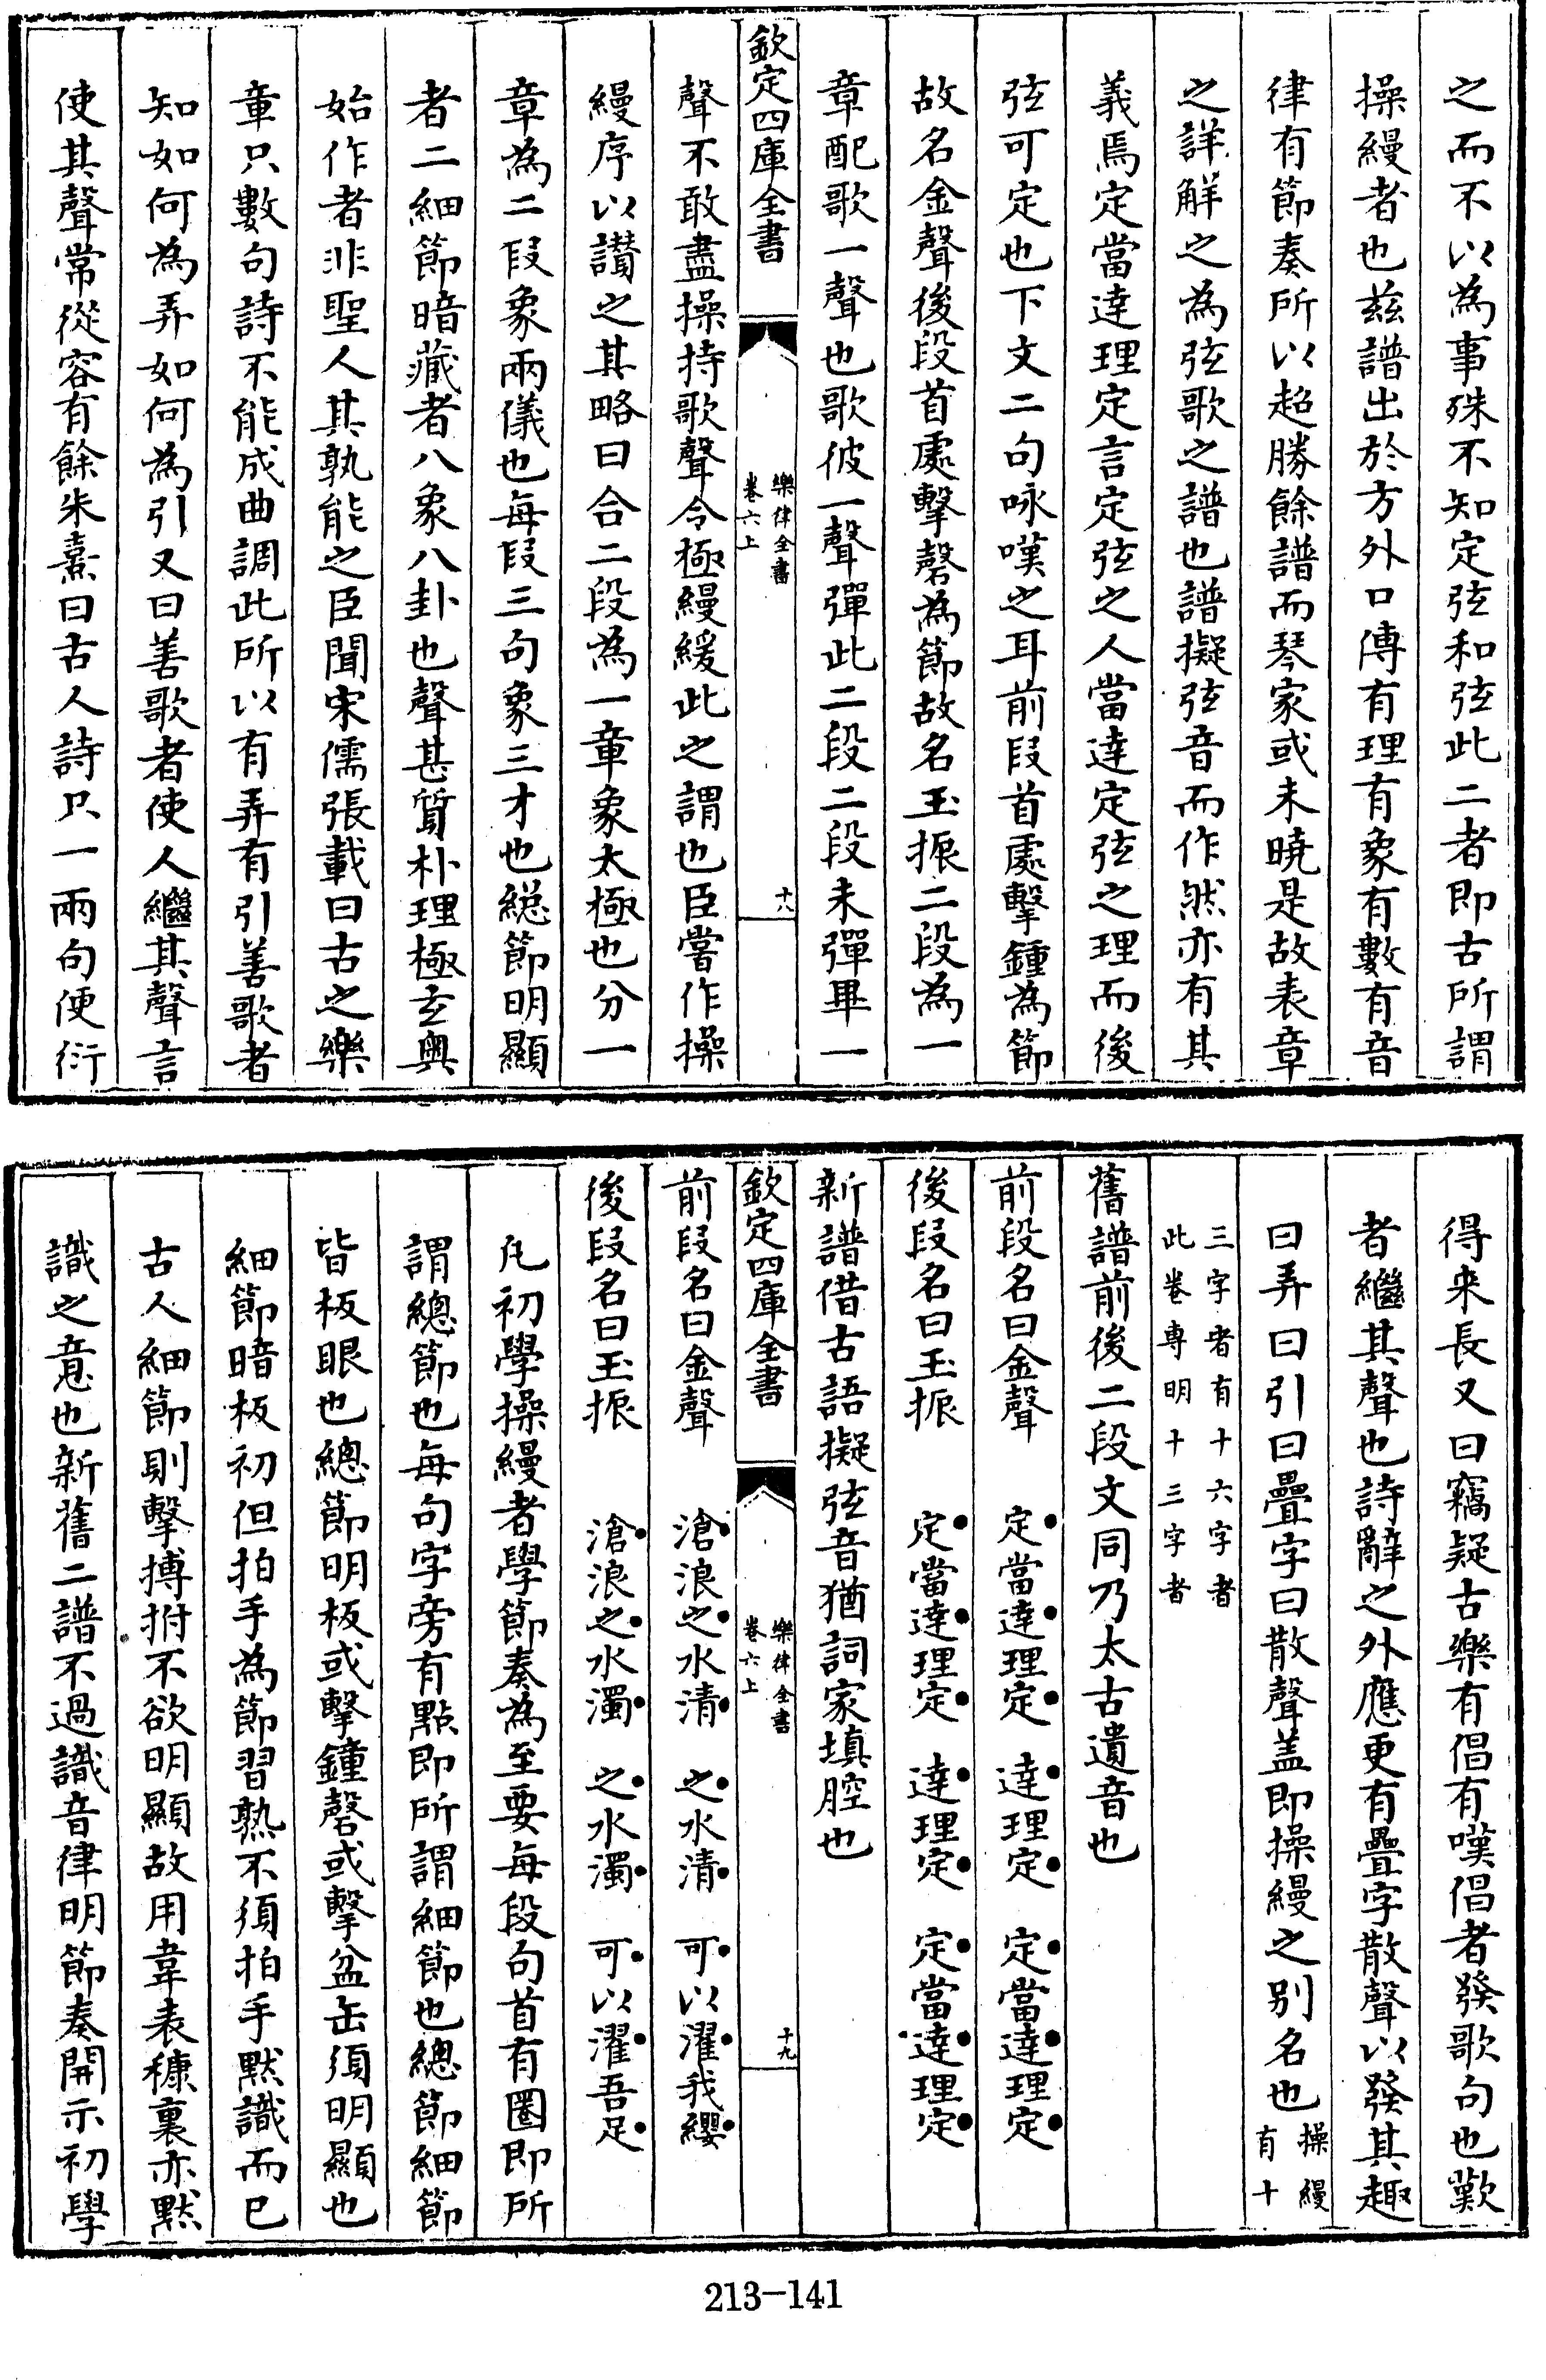 之而不以為事殊不知定弦和弦此二者即古所謂
操縵者也兹譜出於方外口傳有理有象有數有音
律有節奏所以超勝餘譜而琴家或未曉是故表章
之詳解之為弦歌之譜也譜擬弦音而作然亦有其
義焉定當達理定言定弦之人當達定弦之理而後
弦可定也下文二句咏嘆之耳前段首處擊鍾為節
故名金聲後段首處擊磬為節故名玉振二段為一
章配歌一聲也歌彼一聲彈此二段二段未彈畢一
欽定四庫全書
樂律全書
卷六上
十八
聲不敢盡操持歌聲令極縵緩此之謂也臣嘗作操
縵序以讃之其略曰合二段為一章象太極也分一
章為二段象兩儀也每段三句象三才也總節明顯
者二細節暗藏者八象八卦也聲甚質朴理極玄奥
始作者非聖人其孰能之臣聞宋儒張載曰古之樂
章只數句詩不能成曲調此所以有弄有引善歌者
知如何為弄如何為引又曰善歌者使人繼其聲言
使其聲常從容有餘朱熹曰古人詩只一兩句便衍
得来長又曰竊疑古樂有倡有嘆倡者發歌句也歎
者繼其聲也詩辭之外應更有疊字散聲以發其趣
曰弄曰引曰疊字曰散聲盖即操縵之别名也操縵
有十
三字者有十六字者
此卷專明十三字者
舊譜前後二段文同乃太古遺音也
前段名曰金聲 定當達理定 達理定 定當達理定
後段名曰玉振 定當達理定 達理定 定當達理定
新譜借古語擬弦音猶詞家填腔也
欽定四庫全書
樂律全書
卷六上
十九
前段名曰金聲 滄浪之水清 之水清 可以濯我纓
後段名曰玉振 滄浪之水濁 之水濁 可以濯吾足
凡初學操縵者學節奏為至要每段句首有圈即所
謂總節也每句字旁有點即所謂細節也總節細節
皆板眼也總節明板或擊鐘磬或擊盆缶須明顯也
細節暗板初但拍手為節習熟不須拍手默識而已
古人細節則擊搏拊不欲明顯故用韋表糠裏亦黙
識之意也新舊二譜不過識音律明節奏開示初學
213-141